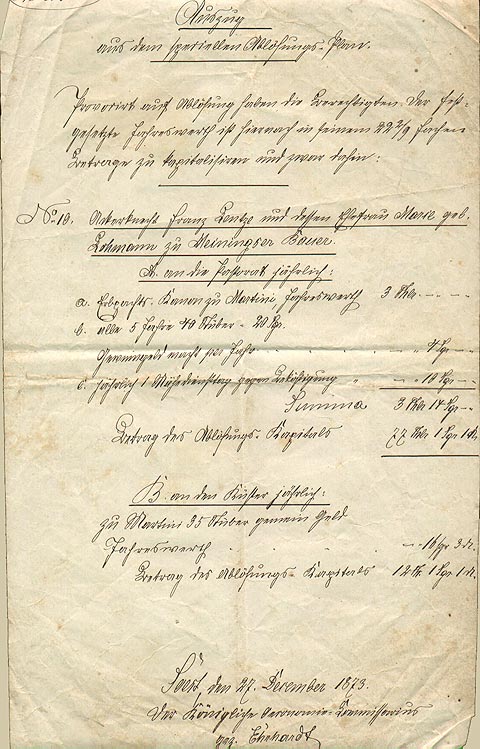 Auszug
aus dem speciellen Ablösungs-Plan.
Provocirt auf Ablösung haben die Berechtigten. Der fest-
gesetzte Jahreswerth ist hiernach in seinem 22 2/9 fachen
Betrage zu kapitalisiren und zwar dahin:
No 19. Ackerknecht Franz Lentze und dessen Ehefrau Marie geb.
Lohmann zu Meiningser Bauer.
A. an die Pastorat jährlich:
a. Erbpachts-Kanon zu Martini, Jahreswerth 3 Thlr. — —
b. alle 5 Jahre 40 Stüber - 20 Sgr.
Gewinngeld macht pro Jahr 4 Sgr —
c. jährlich 1 Mähediensttag gegen Beköstigung " 10 Sgr —
Summa 3 Thlr 14 Sgr —
Betrag des Ablösungs-Kapitals 77 Thlr 1 Sgr 1 d.
B. an den Küster jährlich:
zu Martini 35 Stüber gemein Geld
Jahreswerth — 16 Sgr 3 d.
Betrag des Ablösungs-Kapitals 12 Th. 1 Sgr 1 d.
Soest, den 27. December 1873.
Der Königliche Oeconomie-Kommissarius
gez. Ehrhardt